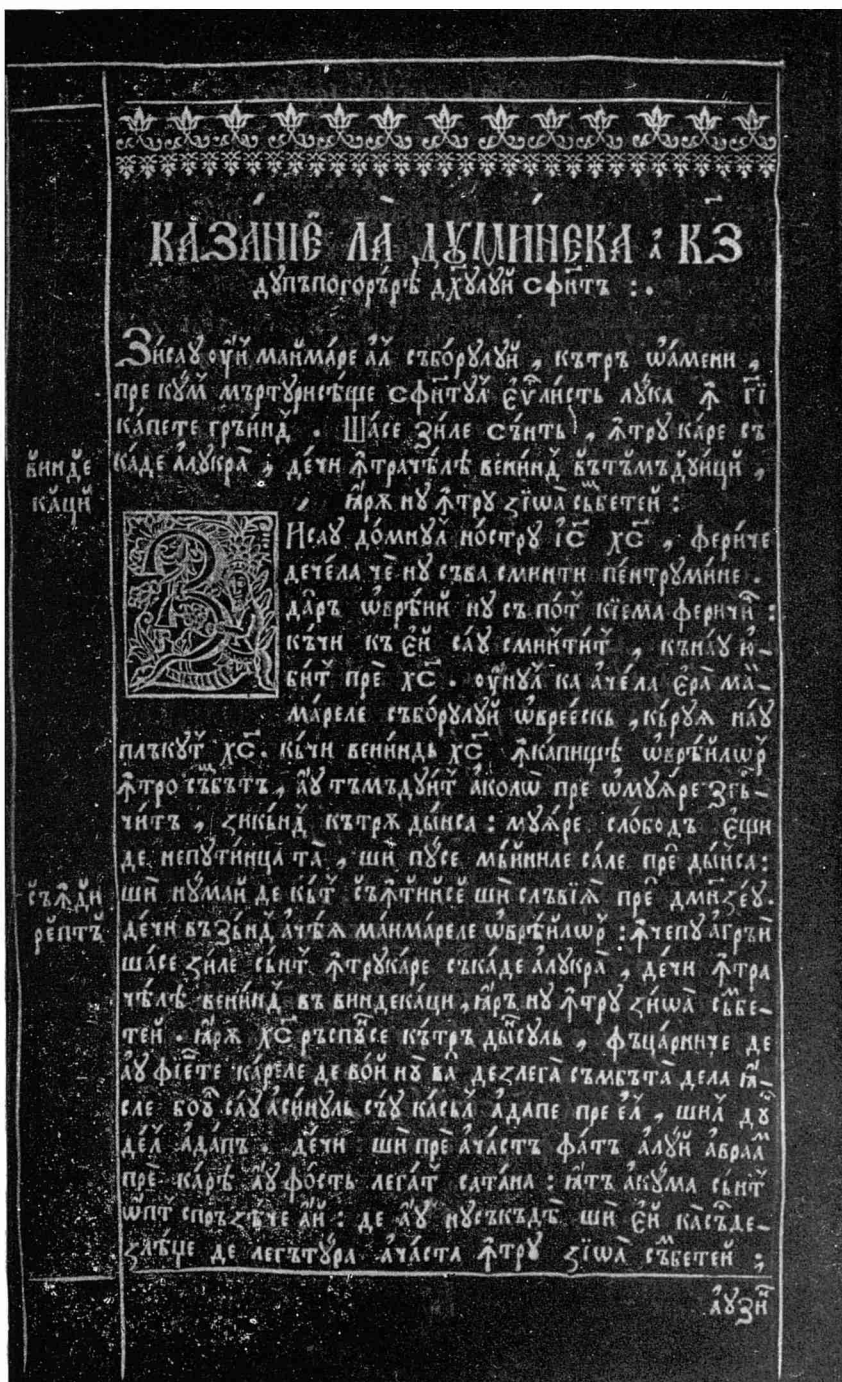 КАЗА́НІЄ ЛА̀ ДꙊМИ́НЕКА а҃ К҃З
дꙋпъпогорѫ́рѣ дх҃ꙋлꙋй сфи҃тъ :.
Зи́саꙋ ᲂу҆́й маймáре ал҆ събо́рꙋлꙋй , кътръ ѡ҆́амени ,
пре кꙋм мъртꙋрисѣ́ще сфи҃тꙋл є҆ѵ҃ли́сть лꙋ́ка ꙟ҆ г҃і
ка́пете гръи́нд . Ша́се зи́ле съ́нть , ꙟ҆трꙋ ка́ре съ
ка́де а҆лꙋкра̀ , де́чи ꙟ҆трачѣ́лѣ вени́нд въ́тъмъдꙋи́ци ,
ꙗ҆́рѫ нꙋ ꙟ҆трꙋ ꙁїѡа̀ съмбетей :
вინде
ка́ци
Исаꙋ до́мнꙋл но́стрꙋ і҆с҃ хс҃ , фери́че
дече́ла чѐ нꙋ съва сминти пе́нтрꙋмине .
да́ръ ѡ҆врѣ́ий нꙋ съ пот кїема ферѝчй :
къ́чи къ є҆й са́ꙋ смини́тит , кънáꙋ ю҆-
би́т прѐ хс҃ . ᲂу҆́нꙋл ка а҆че́ла є҆ра̀ май-
ма́реле събо́рꙋлꙋй ѡ҆врее́скь , кърꙋѧ на́ꙋ
плъкꙋ́т хс҃ . къ́чи вени́ндь хс҃ ꙟ҆ка́пищѣ ѡ҆врѣ́илѡр
ꙟ҆тро съмбътъ , а҆ꙋ тъмъдꙋи́т а҆колѡ̀ пре ѡ҆мꙋꙗ́ре згъ-
чи́тъ , ꙁикъ́нд кътрѫ ды́нса : мꙋꙗ́ре сло́бодъ є҆щи
де непꙋти́нца та̀ , ши пꙋ́се мъ́йниле са́ле прѐ ды́нса :
ши нꙋ́май де кът съꙟ҆ти́нсе ши слъвїѧ̀ прѐ дмн҃ꙁе́ꙋ .
съꙟ҆ди
рѣптъ
де́чи въꙁъ́нд а҆чѣ́ѧ маима́реле ѡ҆врѣ́илѡр : ꙟ҆чепꙋ а҆гръи́
ша́се ꙁиле сънт ꙟ҆трꙋка́ре съка́де а҆лꙋкра̀ , де́чи ꙟ҆тра
чѣ́лѣ вени́нд въ виндека́ци , ꙗ҆́ръ нꙋ ꙟ҆трꙋ ꙁи́ѡа̀ съмбе-
тей . ꙗ҆́рѫ хс҃ ръспꙋ́се кътръ ды́нсꙋль , фъца́рниче де
а҆ꙋ фїе́те ка́реле де во́й нꙋ̀ ва̀ деꙁлега̀ съмбъта̀ дела ꙗ҆-
сле бо́ꙋ са́ꙋ а҆си́нꙋль съ́ꙋ ка́съл а҆да́пе пре е҆л , шил дꙋ
дел а҆да́пъ . де́чи ши прѐ а҆ча́стъ фа́тъ а҆лꙋй а҆враам
прѐ ка́рѣ а҆ꙋ фо́сть лега́т сата́на : ꙗ҆́тъ а҆кꙋ́ма сънт
ѡ҆пт спрꙁѣ́че а҆ни : де а҆ꙋ нꙋсъкъдѣ̀ ши є҆й ка́съде-
ꙁлѣ́це де легътꙋ́ра а҆ча́ста ꙟ҆трꙋ ꙁїѡа̀ съмбетей ;
а҆ꙋзи